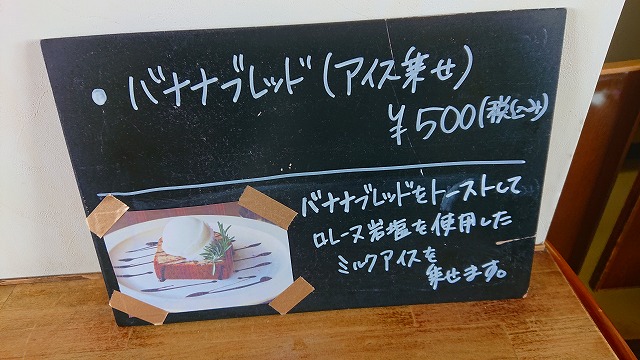 ・バナナブレッド(アイス乗せ)
¥500(税込)
バナナブレッドをトーストして
ロレーヌ岩塩を使用した
ミルクアイスを
乗せます。